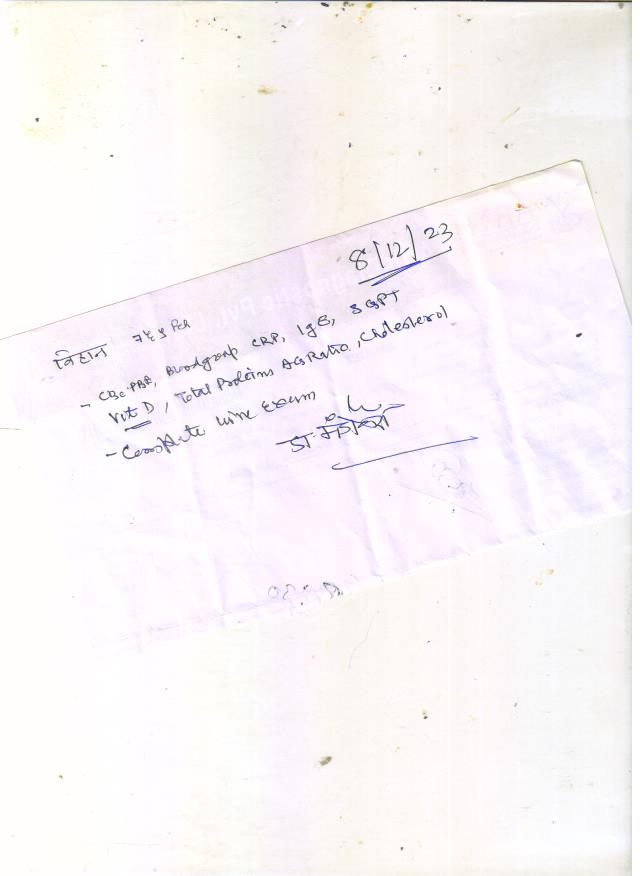 8/12/23
विहान
- CBC PBF, Bloodgroup CRP, IgE, SGPT
Vit D, Total Proteins AG Ratio, Cholesterol
- Complete urine Exam